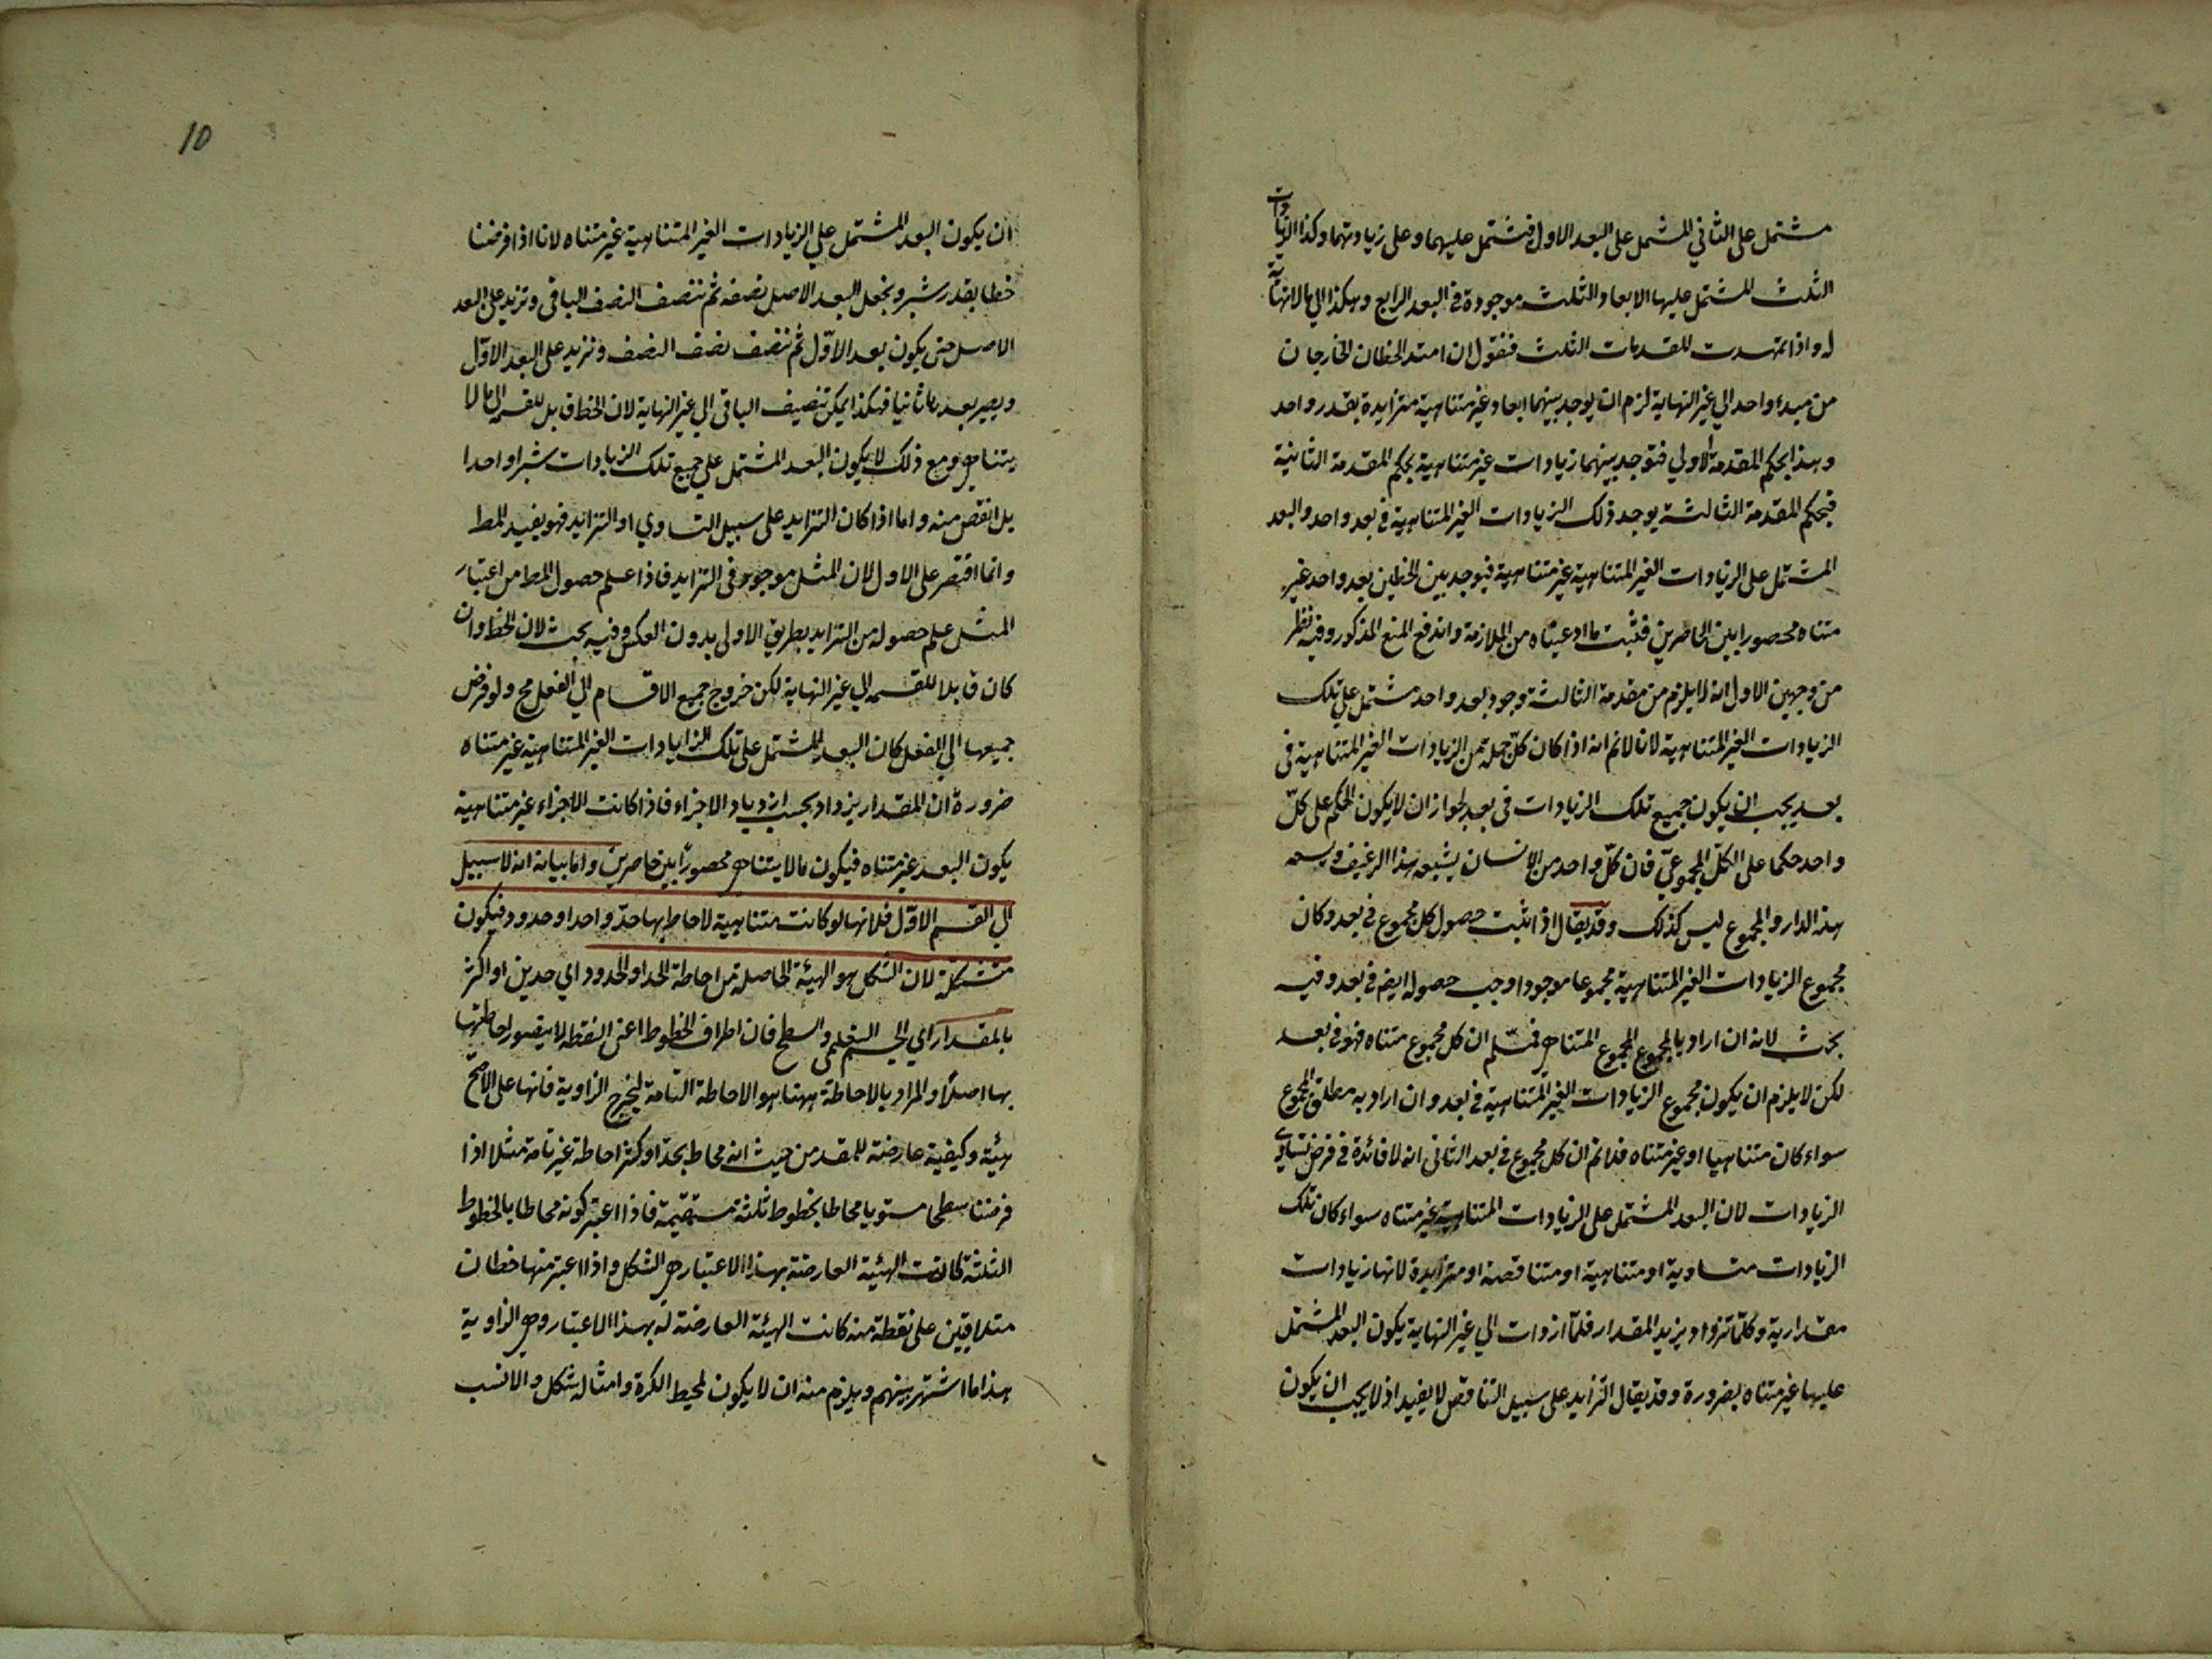 مشتمل على الثاني المشتمل على البعد الاول فتشتمل عليهما وعلى زيادتهما وكذا الزيادات
الثلث المشتمل عليها الابعاد الثلث موجودة في البعد الرابع وهكذا الى ما لا نهاية
له واذا تمهدت المقدمات الثلث فنقول ان امتد الخطان الخارجان
من مبدء واحد الي غير النهاية لزم ان يوجد بينهما ابعاد غير متناهية متزايدة بقدر واحد
وهذا بحكم المقدمة الاولي فتوجد بينهما زيادات غير متناهية بحكم المقدمة الثانية
فبحكم المقدمة الثالثة يوجد ذلك الزيادات الغير المتناهية في بعد واحد والبعد
المشتمل على الزيادات الغير المتناهية غير متناهية فيوجد بين الخطين بعد واحد غير
متناه محصورا بين الحاصرين فثبت ما ادعيناه من الملازمة واندفع المنع المذكور وفيه نظر
من وجهين الاول انه لا يلزم من مقدمة الثالثة وجود بعد واحد مشتمل علي تلك
الزيادات الغير المتناهية لانا لا نم انه اذا كان كل جملة من الزيادات الغير المتناهية في
بعد يجب ان يكون جميع تلك الزيادات في بعد لجواز ان لا يكون الحكم على كل
واحد حكما على الكل المجموعي فان كل واحد من الانسان يشبعه هذا الرغيف ويسعه
هذه الدار والمجموع ليس كذلك وقد يقال اذا ثبت حصول كل مجموع في بعد وكان
مجموع الزيادات الغير المتناهية مجموعا موجودا وجب حصوله ايضم في بعد وفيه
بحث لانه ان اراد بالمجموع المجموع المتناهي فمسلم ان كل مجموع متناه فهو في بعد
لكن لا يلزم ان يكون مجموع الزيادات الغير المتناهية في بعد وان اراد به مطلق المجموع
سواء كان متناهيا او غير متناه فلا نم ان كل مجموع في بعد الثاني انه لا فائدة في فرض تساوي
الزيادات لان البعد المشتمل على الزيادات المتناهية غير متناه سواء كان تلك
الزيادات متساوية او متناهية او متناقصة او متزايدة لانها زيادات
مقدارية وكلما تزداد يزيد المقدار فلما ازدات الي غير النهاية يكون البعد المشتمل
عليها غير متناه بضرورة وقد يقال التزايد على سبيل التناقص لا يفيد اذ لا يجب ان يكون
10
ان يكون البعد المشتمل علي الزيادات الغير المتناهية غير متناه لانا اذا فرضنا
خطا بقدر شبر ونجعل البعد الاصل نصفه ثم ننصف النصف الباقى ونزيد على البعد
الاصل حتى يكون بعد الاوّل ثم ننصف نصف النصف ونزيد على البعد الاوّل
ويصير بعدا ثانيا فهكذا يمكن تنصيف الباقى الي غير النهاية لان الخط قابل للقسمه الى ما لا
يتناهي ومع ذلك لا يكون البعد المشتمل علي جميع تلك الزيادات شبرا واحدا
بل انقص منه واما اذا كان التزايد على سبيل التساوي او التزايد فهو يفيد المط
وانما اقتصر على الاول لان المثل موجود فى التزايد فاذا علم حصول المط من اعتبار
المثل علم حصوله من التزايد بطريق الاولى بدون العكس وفيه بحث لان الخط وان
كان قابلا للقسمه الي غير النهاية لكن خروج جميع الاقسام الي الفعل مح ولو فرض
جميعها الي الفعل كان البعد المشتمل على تلك الزايادات الغير المتناهية غير متناه
ضرورة ان المقدار يزداد بحسب ازدياد الاجزاء فاذا كانت الاجزاء غير متناهية
يكون البعد غير متناه فيكون ما لا يتناهي محصورًا بين حاصرين واما بيان انه لا سبيل
الي القسم الاوّل فلانها لو كانت متناهية لاحاط بها حدّ واحد او حدود فيكون
متشكلة لان الشكل هو الهيئة الحاصلة من احاطة الحد او الحدود اي حدين او اكثر
بالمقدار اي الجسم التعليمى والسطح فان اطراف الخطوط اعنى النقطه لا يتصور احاطتها
بها اصلًا والمراد بالاحاطة ههنا هو الاحاطة التامة ليخرج الزاوية فانها على الاصحّ
هيئة وكيفية عارضة للمقدر من حيث انه محاط بحدّ او كثر احاطة غير تامة مثلا اذا
فرضنا سطحا مستويا محاطا بخطوط ثلثة مستقيمة فاذا اعتبر كونه محاطا بالخطوط
الثلثة كانت الهيئة العارضة بهذا الاعتبار هي الشكل واذا اعتبر منها خطان
متلاقيين على نقطة منه كانت الهيئة العارضة له بهذا الاعتبار وهي الزاوية
هذا ما اشتهر بينهم ويلزم منه ان لا يكون لمحيط الكرة وامثاله شكل والانسب